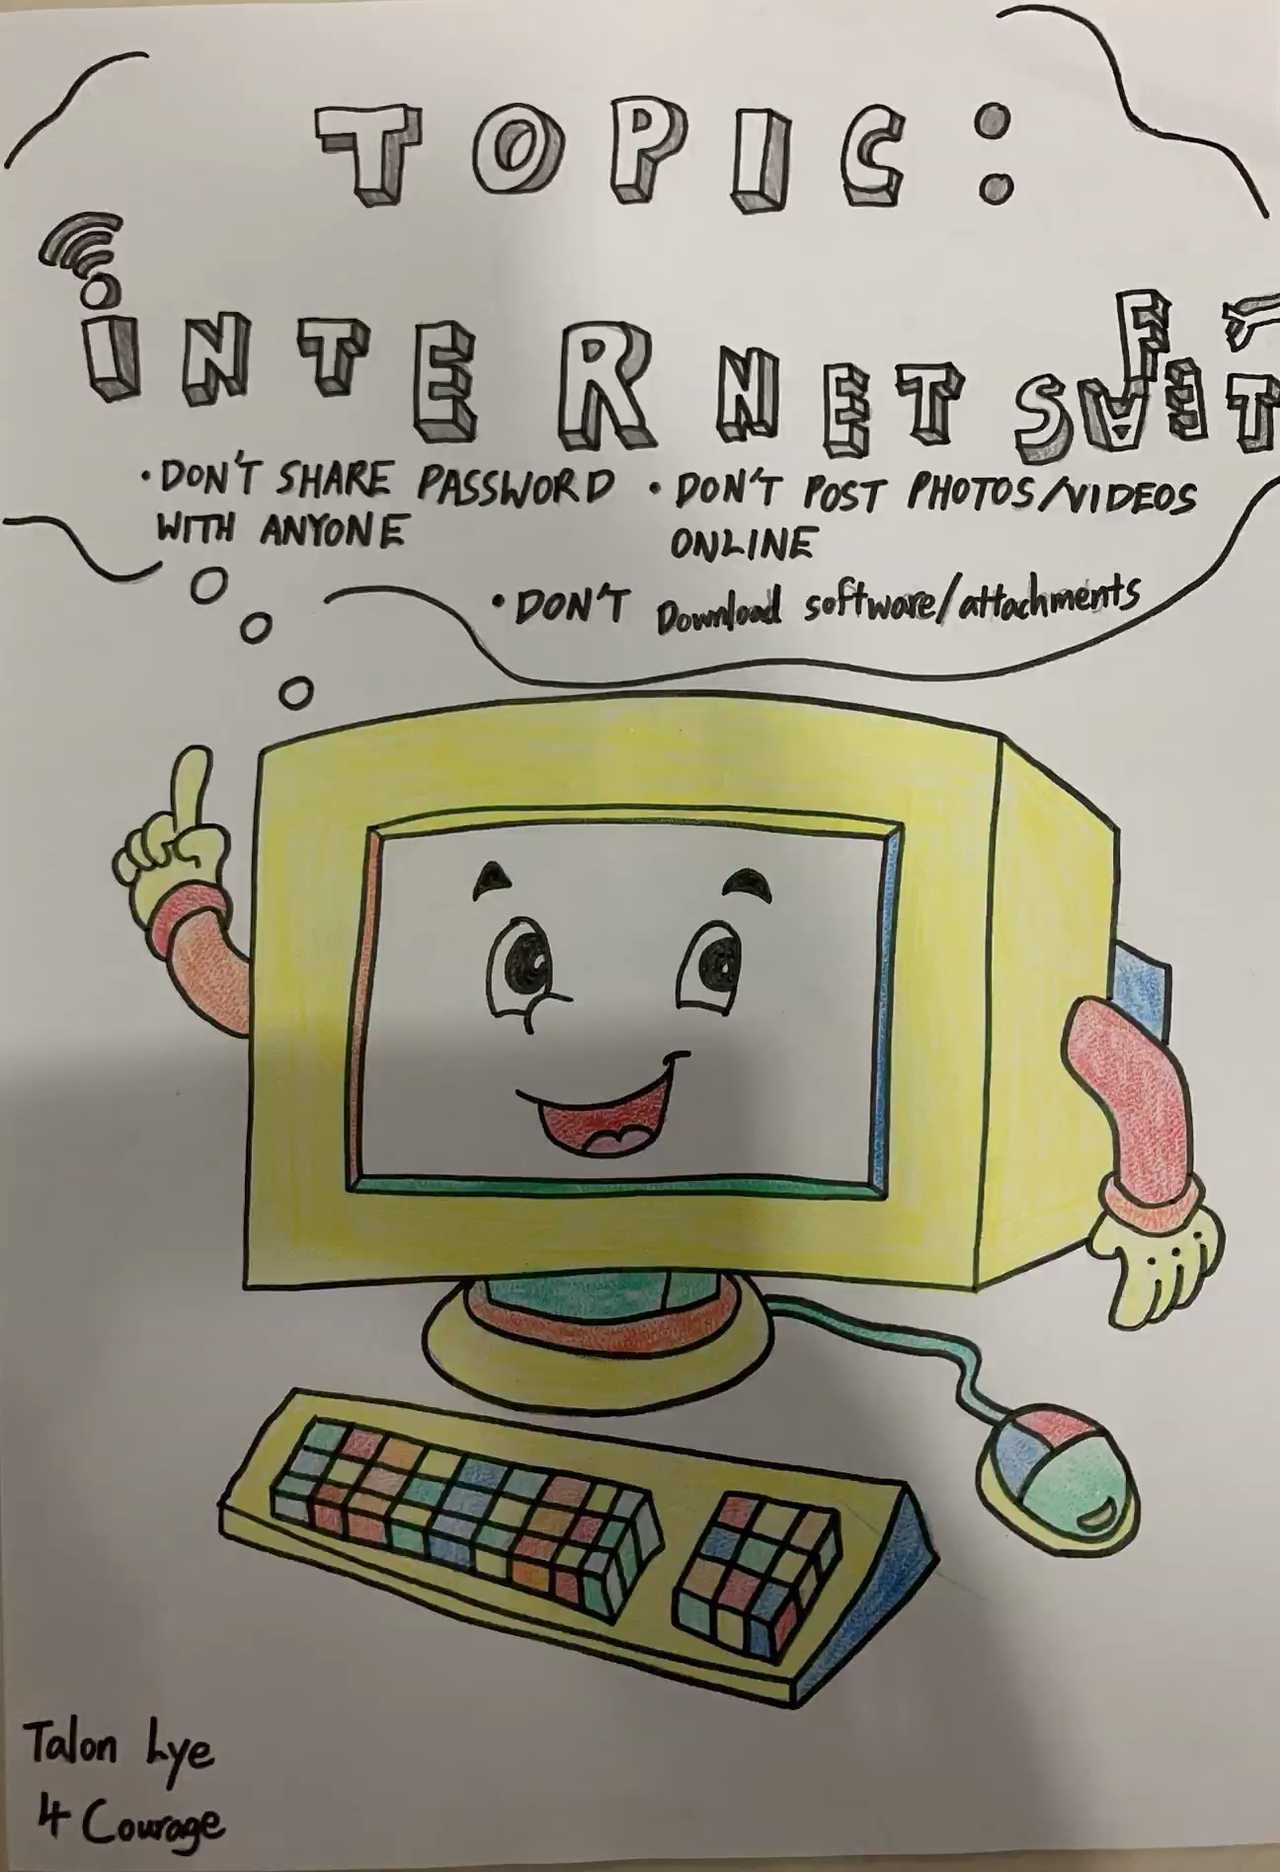 TOPIC:
INTERNET SAFETY
• DON'T SHARE PASSWORD
WITH ANYONE
• DON'T POST PHOTOS/VIDEOS
ONLINE
• DON'T Download software/attachments
Talon Lye
4 Courage